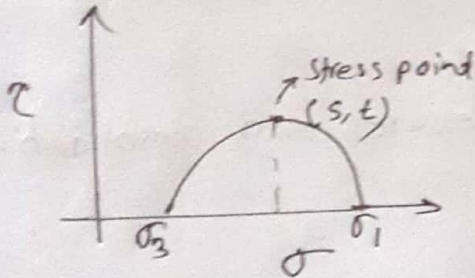 τ
Stress point
(s, t)
σ3
σ
σ1